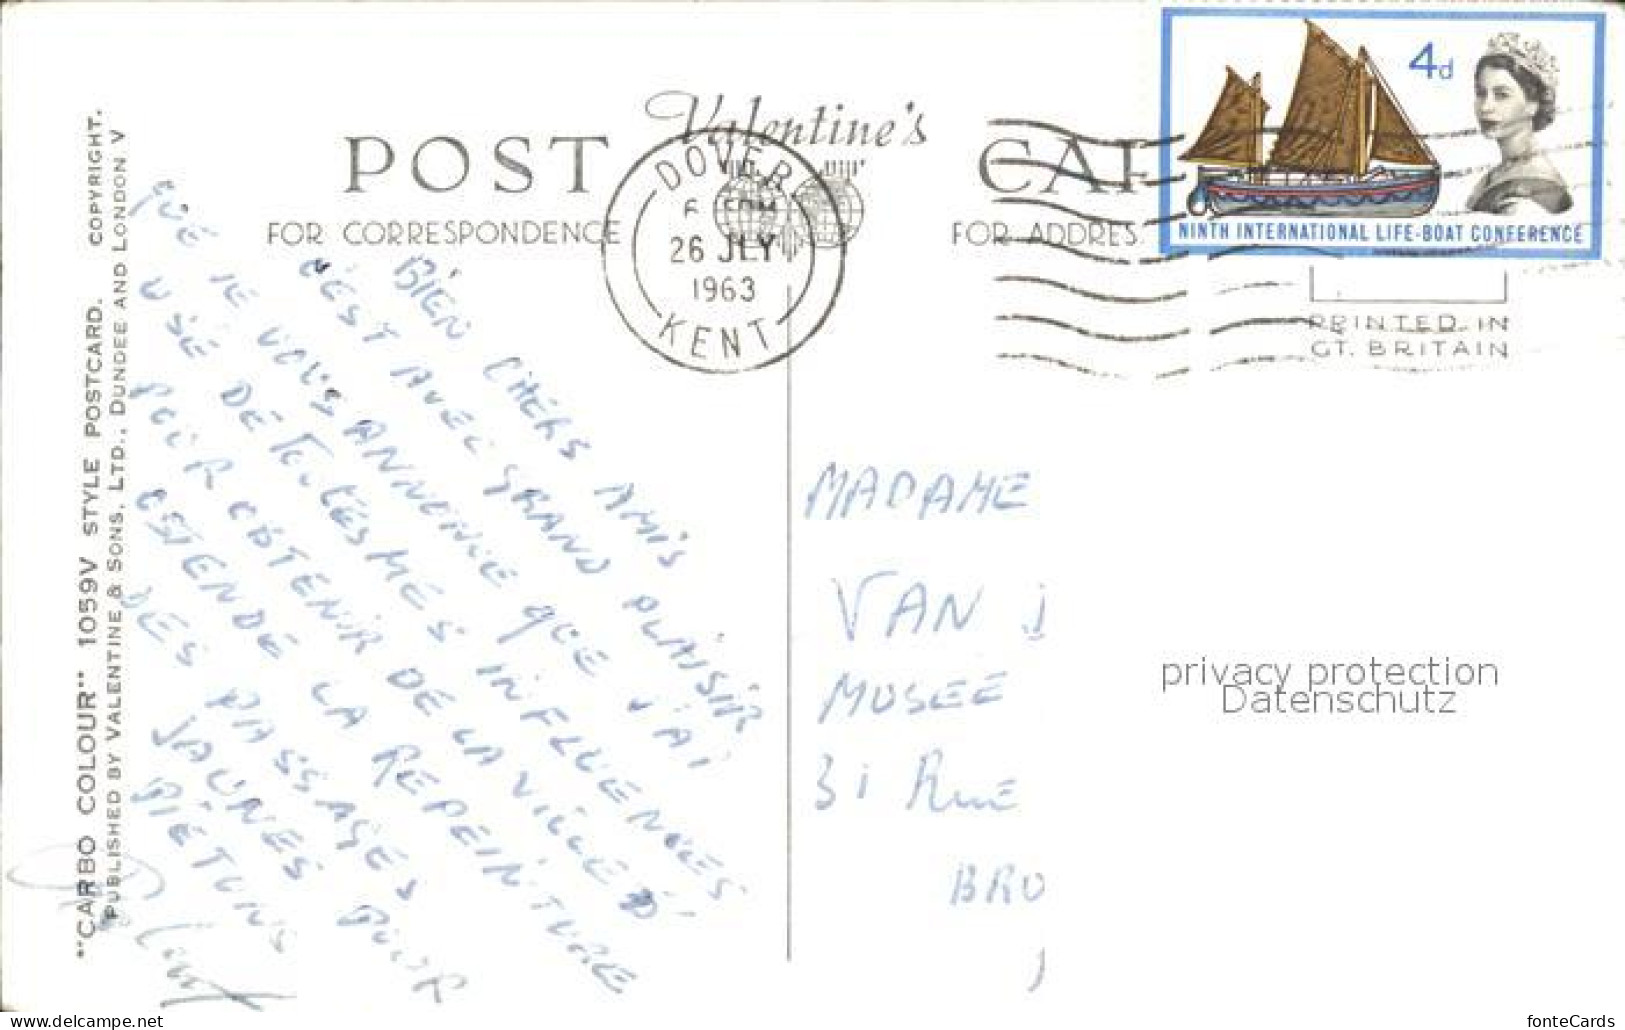 Valentine's
POST CAR
FOR CORRESPONDENCE
FOR ADDRES
DOVER
26 JLY
1963
KENT
4d
NINTH INTERNATIONAL LIFE-BOAT CONFERENCE
PRINTED IN
GT. BRITAIN
"CARBO COLOUR" 1059V STYLE POSTCARD. COPYRIGHT.
PUBLISHED BY VALENTINE & SONS, LTD., DUNDEE AND LONDON V
BIEN CHERS AMIS
C'EST AVEC GRAND PLAISIR
QUE JE VOUS ANNONCE QUE J'AI
USÉ DE TOUTES MES INFLUENCES
POUR OBTENIR DE LA VILLE D'
OSTENDE LA REPEINTURE
DES PASSAGES POUR
JAUNES
PIÉTONS
MADAME
VAN
MUSEE
31 Rue
BRU
privacy protection
Datenschutz
www.delcampe.net
fonteCards